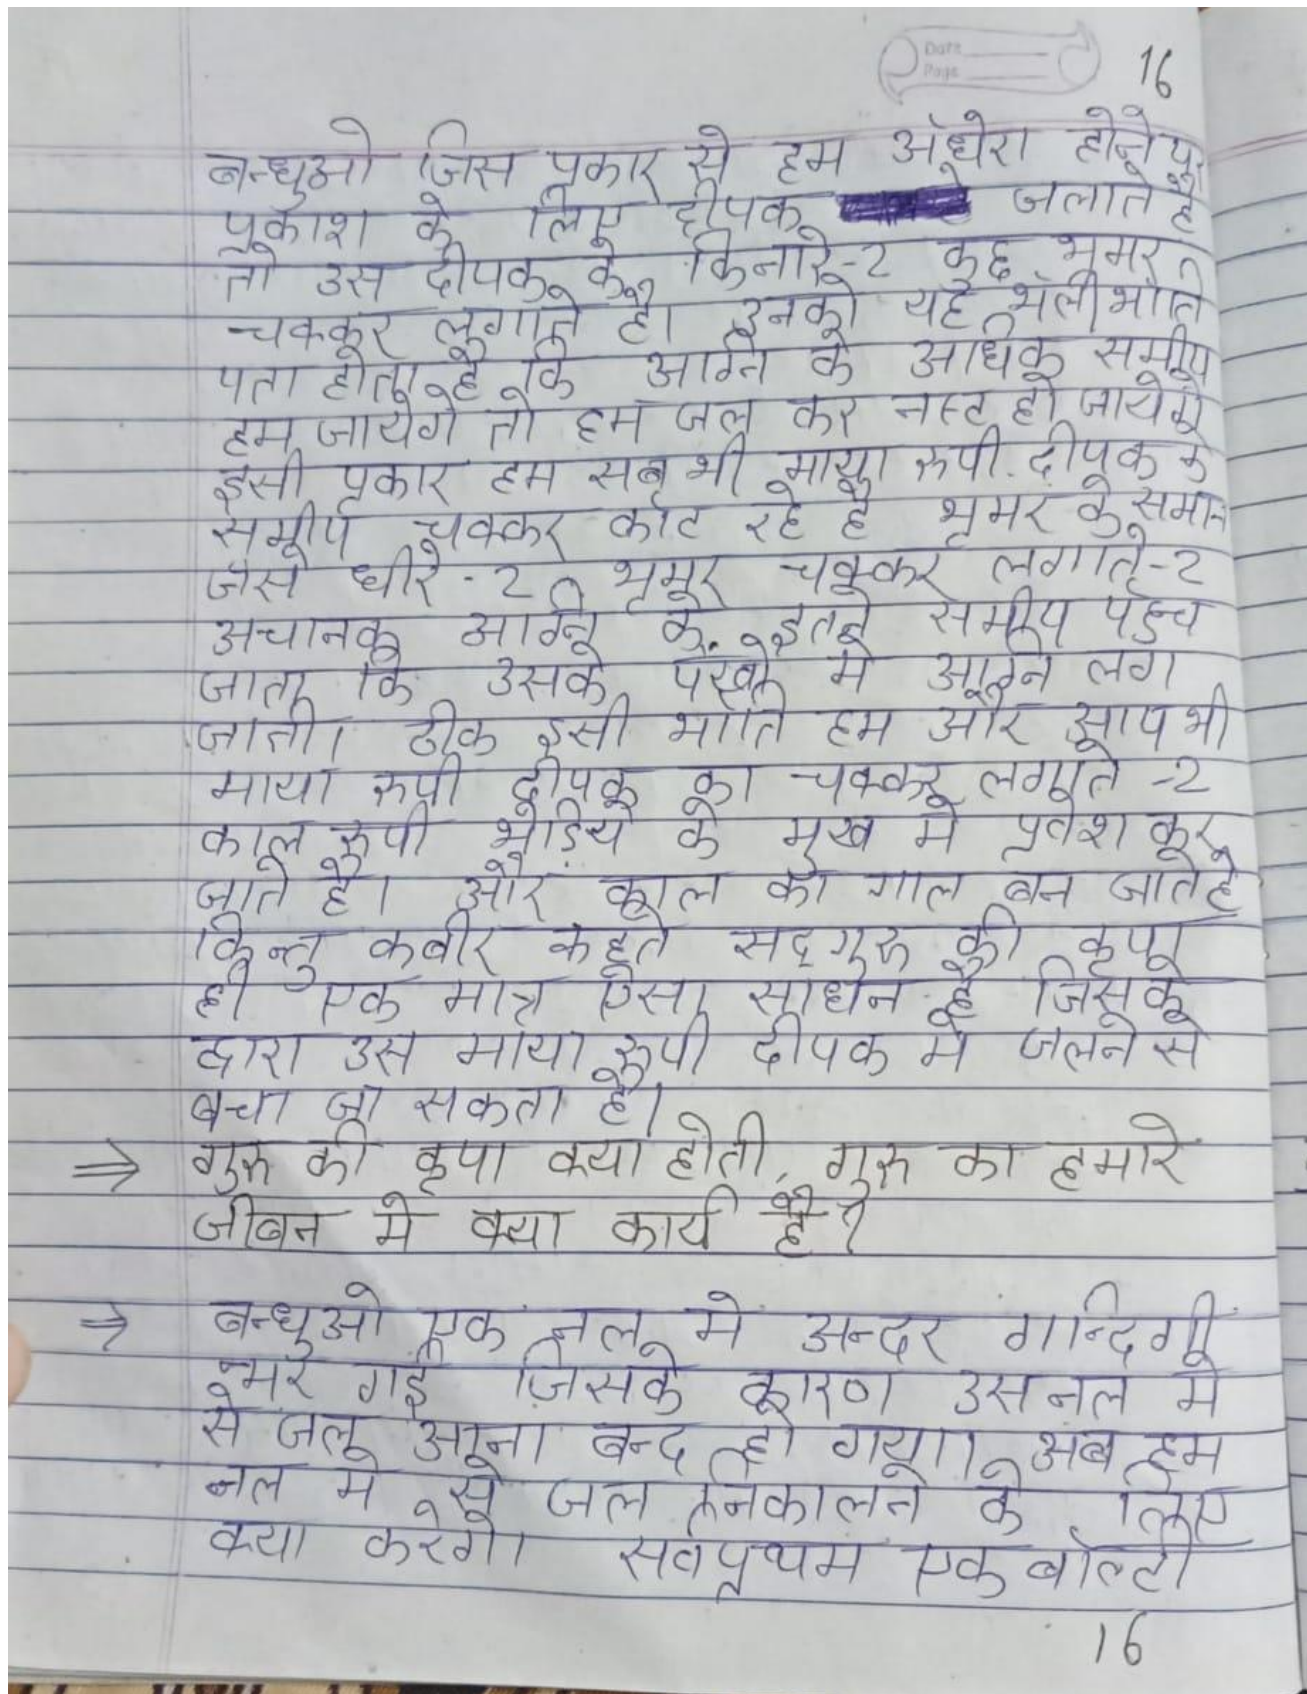 Date
Page
16
बन्धुओ जिस प्रकार से हम अँधेरा होने पर
प्रकाश के लिए दीपक जलाते है
तो उस दीपक के किनारे-2 कुछ भ्रमर
चक्कर लगाते है। उनको यह भलीभाँति
पता होता है कि अग्नि के अधिक समीप
हम जायेगे तो हम जल कर नस्ट हो जायेगे
इसी प्रकार हम सब भी माया रुपी दीपक के
समीप चक्कर काट रहे है भ्रमर के समान
जैसे धीरे-2 भ्रमर चक्कर लगाते-2
अचानक अग्नि के इतने समीप पहुच
जाता कि उसके पंखो मे अग्नि लग
जाती। ठीक इसी भाँति हम और आप भी
माया रुपी दीपक का चक्कर लगाते -2
काल रुपी भेड़िये के मुख मे प्रवेश कर
जाते है। और काल का गाल बन जाते है
किन्तु कबीर कहते सद्गुरु की कृपा
ही एक मात्र ऐसा साधन है जिसके
द्वारा उस माया रुपी दीपक मे जलने से
बचा जा सकता है।
⇒ गुरु की कृपा क्या होती, गुरु का हमारे
जीबन मे क्या कार्य है?
⇒ बन्धुओ एक नल मे अन्दर गन्दिगी
भर गई जिसके कारण उस नल मे
से जल आना बन्द हो गया। अब हम
नल मे से जल निकालने के लिए
क्या करेगे। सर्वप्रथम एक बाल्टी
16